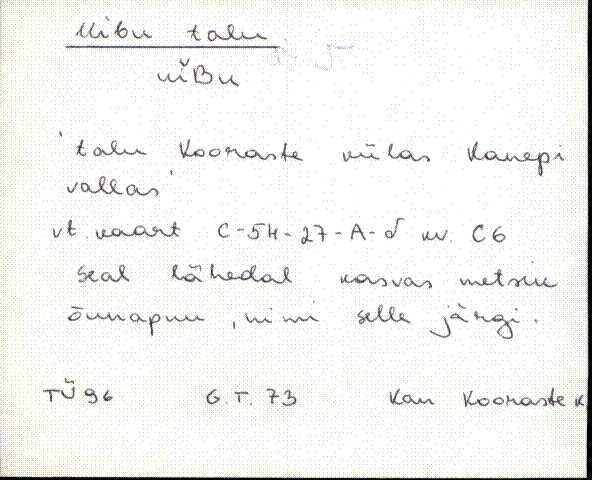 Uibu talu
uiBu
'talu Kooraste külas Kanepi
vallas'
vt. kaart C-54-27-A-d kv. C6
seal lähedal kasvas metsik
õunapuu, nimi selle järgi.
TÜ 96 G.T. 73 Kan Kooraste k